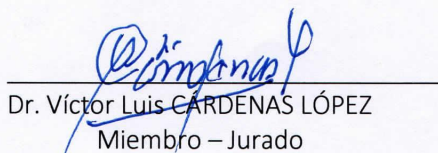 Dr. Víctor Luis CÁRDENAS LÓPEZ
Miembro – Jurado